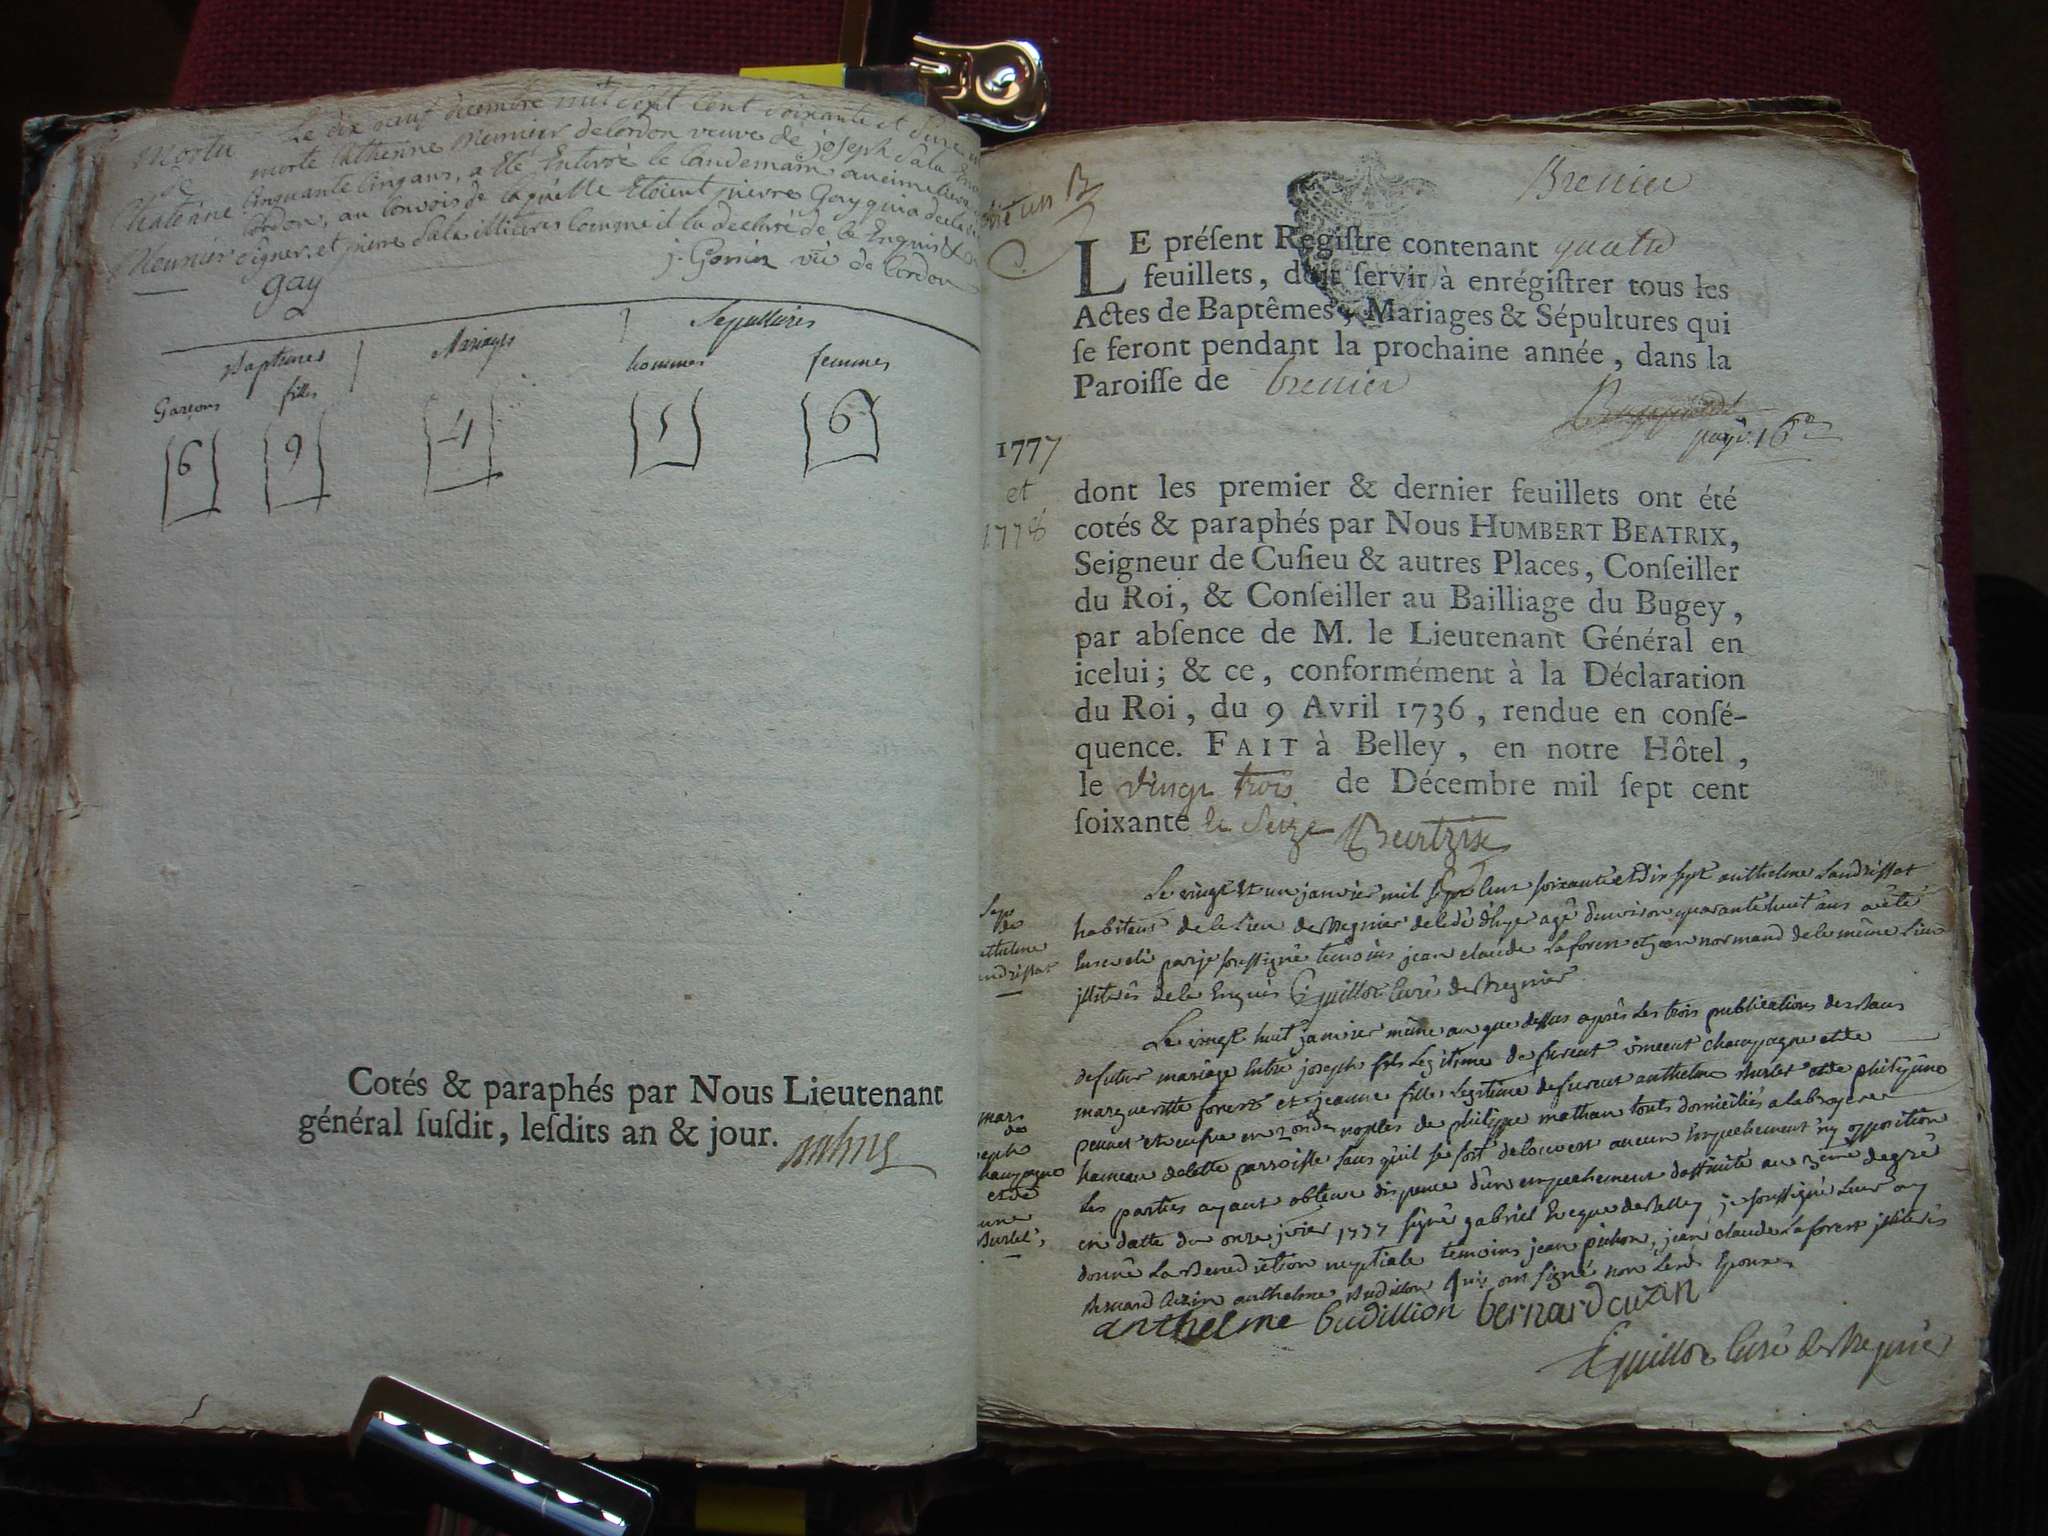 Mortu Le dix neuf decembre mil sept cent soixante et
de morte Catherine Meunier de Cordon veuve de joseph Sala
Chaterine Cinquante Cinq ans, a été Enterré le landemain au cimetiere
Cordon, au convois de laquelle Etoient pierre Gay qui a
Meunier signer, et pierre Sala illiteres comme il la declaré de ce Enquis
j. Gorrier vic de Cordon
gay
Baptemes Mariages Sepultures
Garçons filles hommes femmes
6 9 4 5 6
Cotés & paraphés par Nous Lieutenant
général ſuſdit, leſdits an & jour.
Brenier
LE préſent Regiſtre contenant quatre
feuillets, doit ſervir à enrégiſtrer tous les
Actes de Baptêmes, Mariages & Sépultures qui
ſe feront pendant la prochaine année, dans la
Paroiſſe de brenier
1777
et
1778
dont les premier & dernier feuillets ont été
cotés & paraphés par Nous HUMBERT BEATRIX,
Seigneur de Cuſieu & autres Places, Conſeiller
du Roi, & Conſeiller au Bailliage du Bugey,
par abſence de M. le Lieutenant Général en
icelui; & ce, conformément à la Déclaration
du Roi, du 9 Avril 1736, rendue en conſé-
quence. FAIT à Belley, en notre Hôtel,
le vingt trois de Décembre mil ſept cent
ſoixante et Seize Beatrix
Le vingt et un janvier mil sept cent soixante et dix sept anthelme Landrissat
habitant de ce Lieu de Bregnier décédé d'hyer agé d'environ quarante huit ans a été
Enseveli par je soussigné temoins jean claude Laforest et jean normand de ce même Lieu
illiterés de ce Enquis Guillot curé de Bregnier
Le vingt huit janvier même an que dessus après les trois publications des Bans
de futur mariage Entre joseph fils Legitime de furent vincent champagne et de
margueritte forest et jeanne fille Legitime de furent anthelme Burlet et de philippine
pennet et veufve en 2ondes noples de philippe mathan touts domiciliés a la bruyere
hameau de cette parroisse sans qu'il se soit decouvert aucun Empechement ny opposition
Les parties ayant obtenu dispence d'un empechement d'affinité au 3eme degré
en datte du onze jvier 1777 signé gabriel Eveque de Belley je soussigné Leur ay
donné La Benediction nuptiale temoins jean pichon, jean claude Laforest illiterés
Bernard Cuzin anthelme Budillion qui ont signé non Les Epoux
anthelme budillion bernard cuzin
Guillot Curé de Bregnier